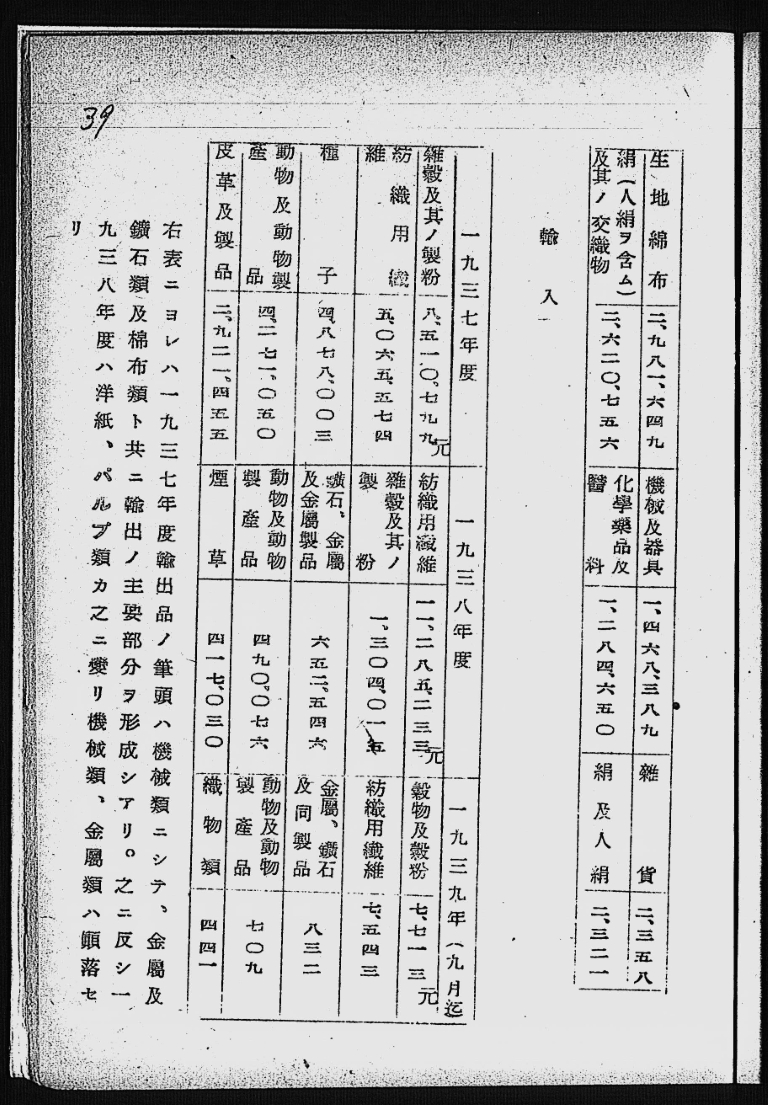 39
生地綿布 二、九八一、六四九 機械及器具 一、四六八、三八九 雜貨 二、三五八
絹(人絹ヲ含ム)及其ノ交織物 二、六二〇、七五六 化學藥品及醫料 一、二八四、六五〇 絹及人絹 二、三二一
輸入
一九三七年度 一九三八年度 一九三九年(九月迄)
雜穀及其ノ製粉 八、五一〇、七九九元 紡織用纖維 一一、二八五、二三三元 穀物及穀粉 七、七一三元
紡織用纖維 五、〇六五、五七四 雜穀及其ノ製粉 一、三〇四、〇一五 紡織用纖維 七、五四三
種子 四、八七八、〇〇三 鑛石、金屬及金屬製品 六五二、五四六 金屬、鑛石及同製品 八三二
動物及動物製產品 四、二七一、〇五〇 動物及動物製產品 四九〇、〇七六 動物及動物製產品 七〇九
皮革及製品 二、九二一、四五五 煙草 四一七、〇三〇 織物類 四四一
右表ニヨレハ一九三七年度輸出品ノ筆頭ハ機械類ニシテ、金屬及
鑛石類及棉布類ト共ニ輸出ノ主要部分ヲ形成シアリ。之ニ反シ一
九三八年度ハ洋紙、パルプ類カ之ニ變リ機械類、金屬類ハ顚落セ
リ